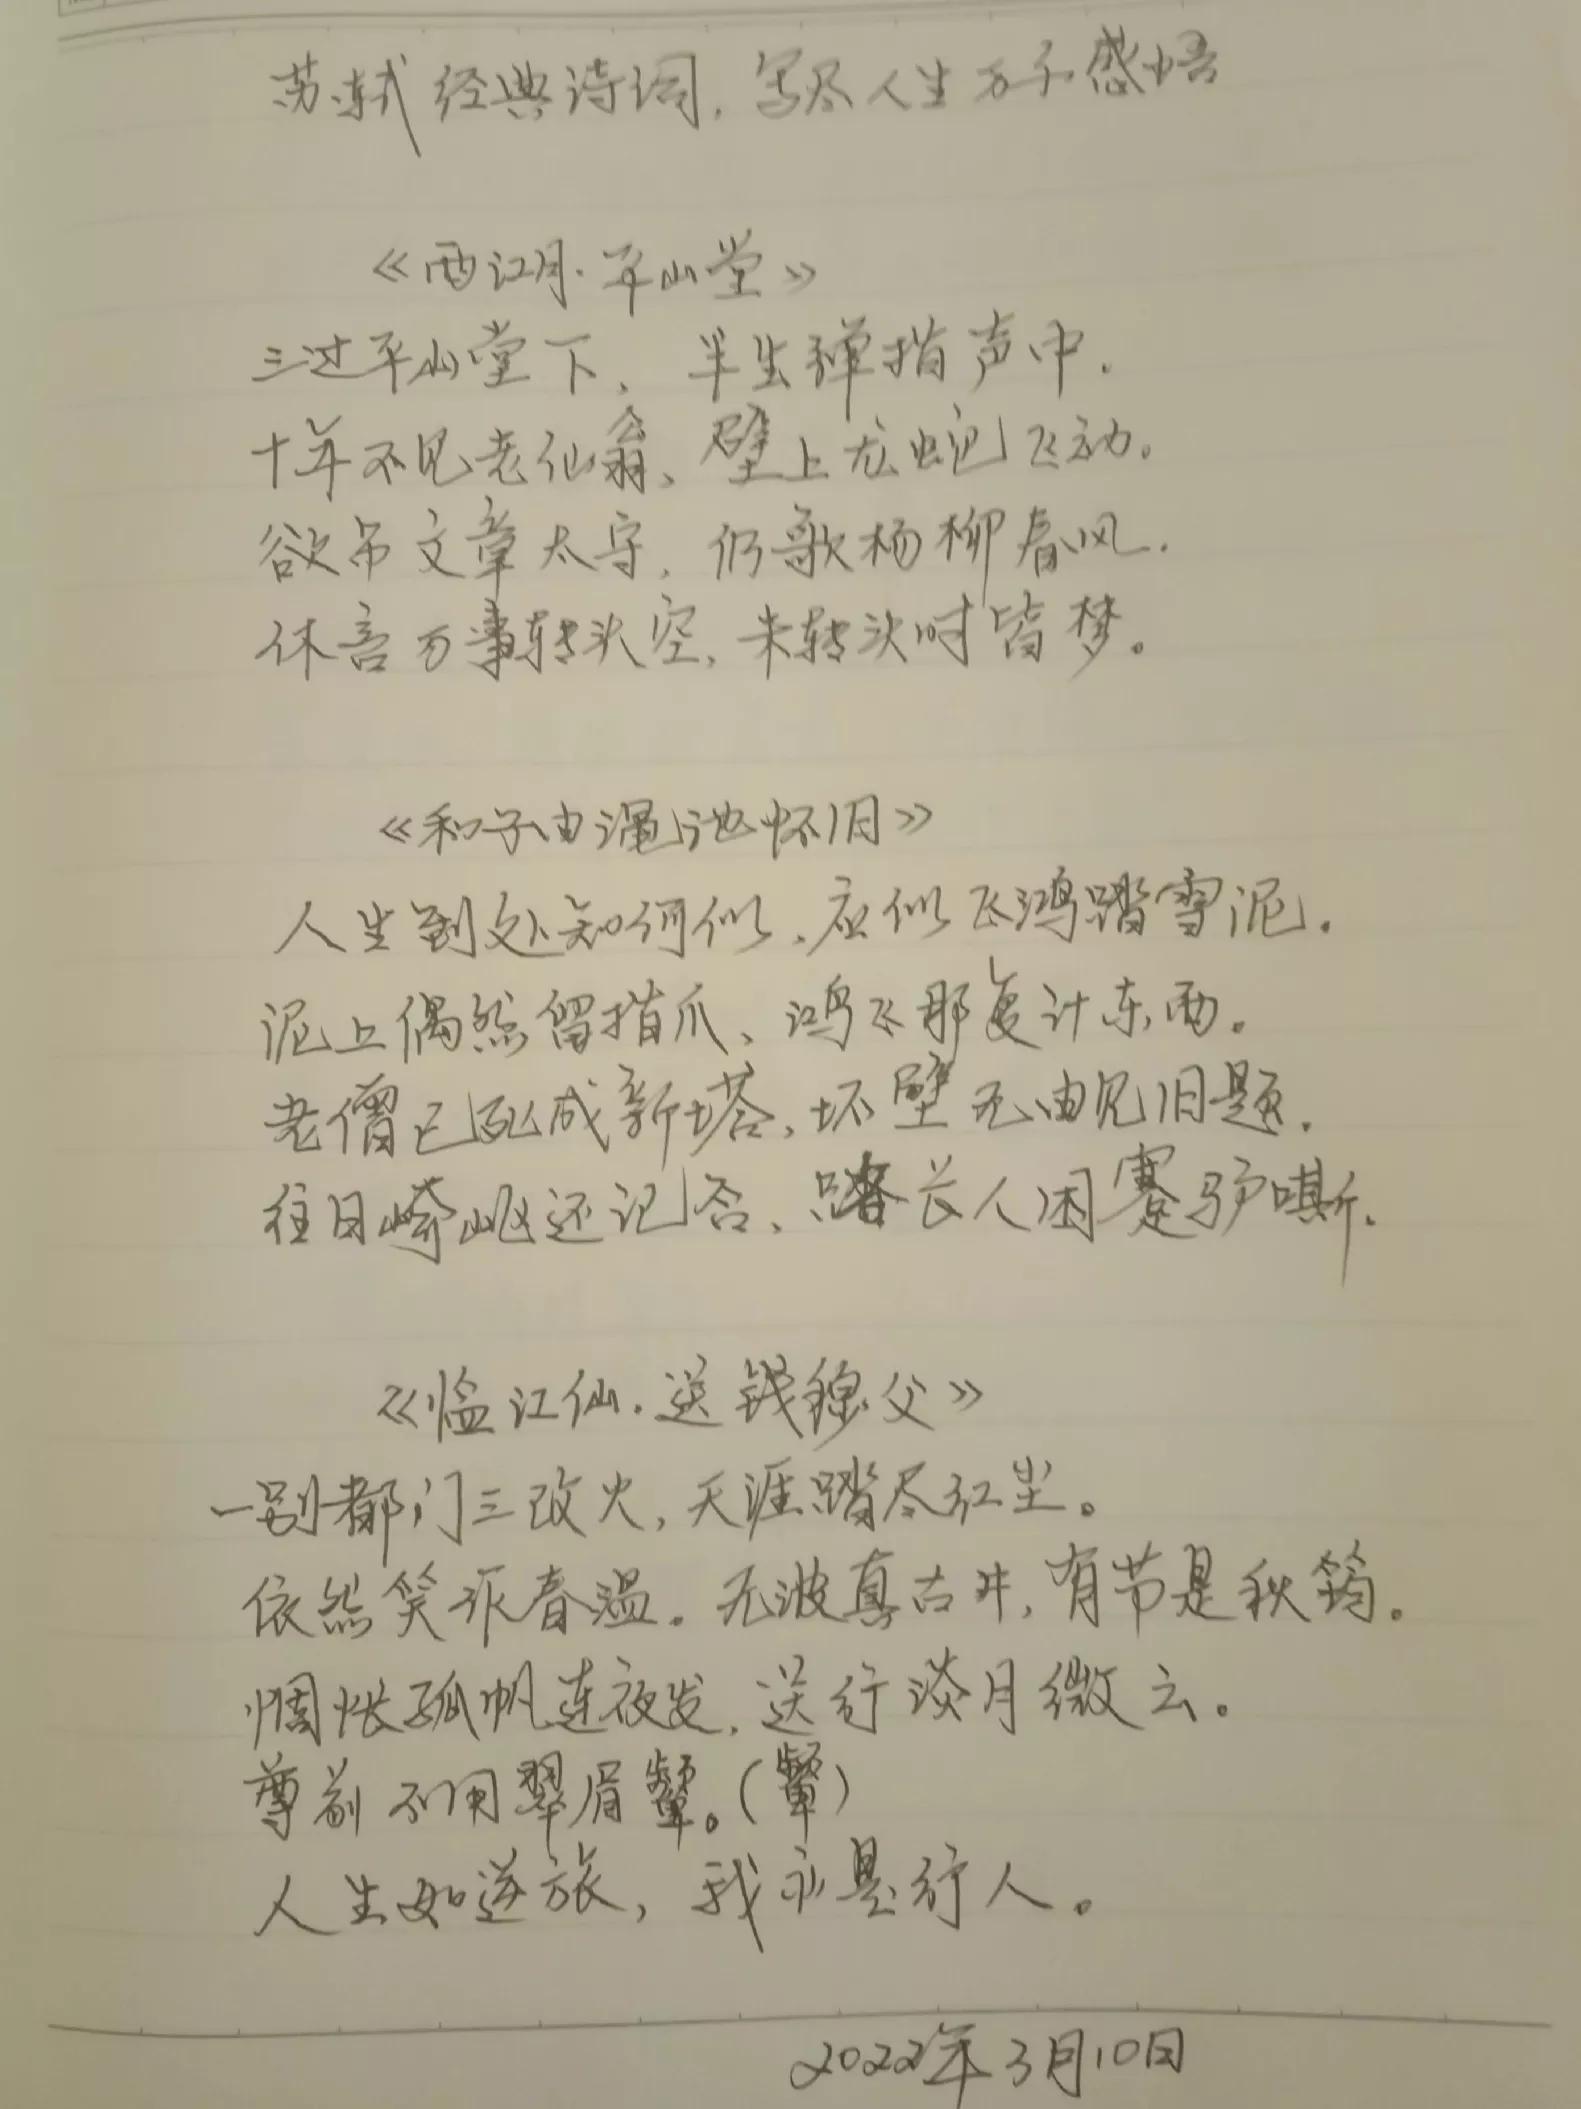 苏轼经典诗词，写尽人生万千感悟
《西江月·平山堂》
三过平山堂下，半生弹指声中.
十年不见老仙翁、壁上龙蛇飞动。
欲吊文章太守，仍歌杨柳春风.
休言万事转头空，未转头时皆梦。
《和子由渑池怀旧》
人生到处知何似、应似飞鸿踏雪泥.
泥上偶然留指爪、鸿飞那复计东西。
老僧已死成新塔，坏壁无由见旧题.
往日崎岖还记否、路长人困蹇驴嘶.
《临江仙·送钱穆父》
一别都门三改火，天涯踏尽红尘。
依然笑作春温。无波真古井，有节是秋筠。
惆怅孤帆连夜发，送行淡月微云。
尊前不用翠眉颦。(颦)
人生如逆旅，我亦是行人。
2022年3月10日